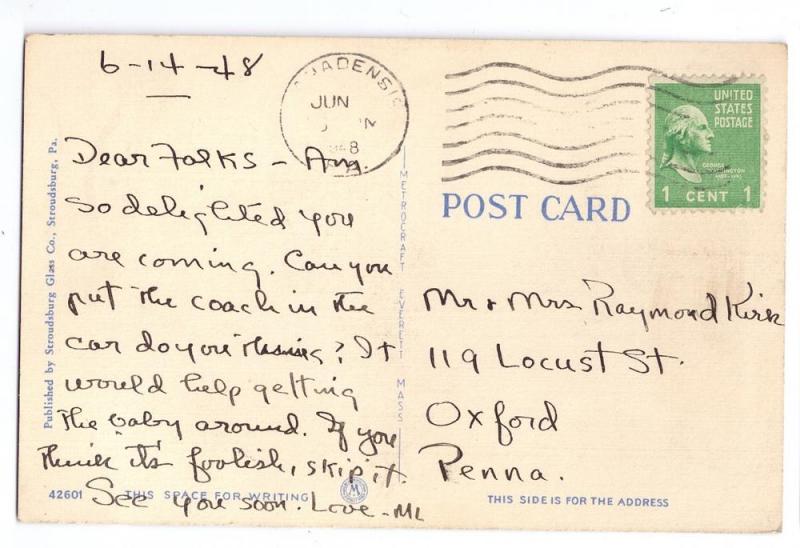 6-14-48
Dear Folks - Am
so delighted you
are coming. Can you
put the coach in the
car do you think? It
would help getting
the baby around. If you
think its foolish, skip it.
See you soon. Love - ML
42601 THIS SPACE FOR WRITING
Published by Stroudsburg Glass Co., Stroudsburg, Pa.
METROCRAFT EVERETT MASS
JUN
UNITED
STATES
POSTAGE
GEORGE
WASHINGTON
1 CENT 1
POST CARD
Mr + Mrs Raymond Kirk
119 Locust St.
Oxford
Penna.
THIS SIDE IS FOR THE ADDRESS